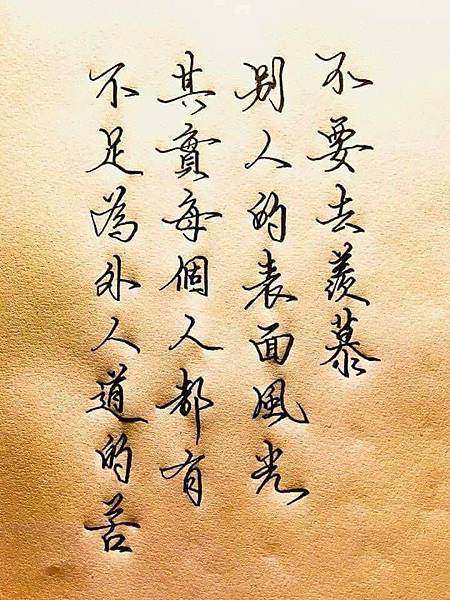 不要去羨慕
別人的表面風光
其實每個人都有
不足為外人道的苦